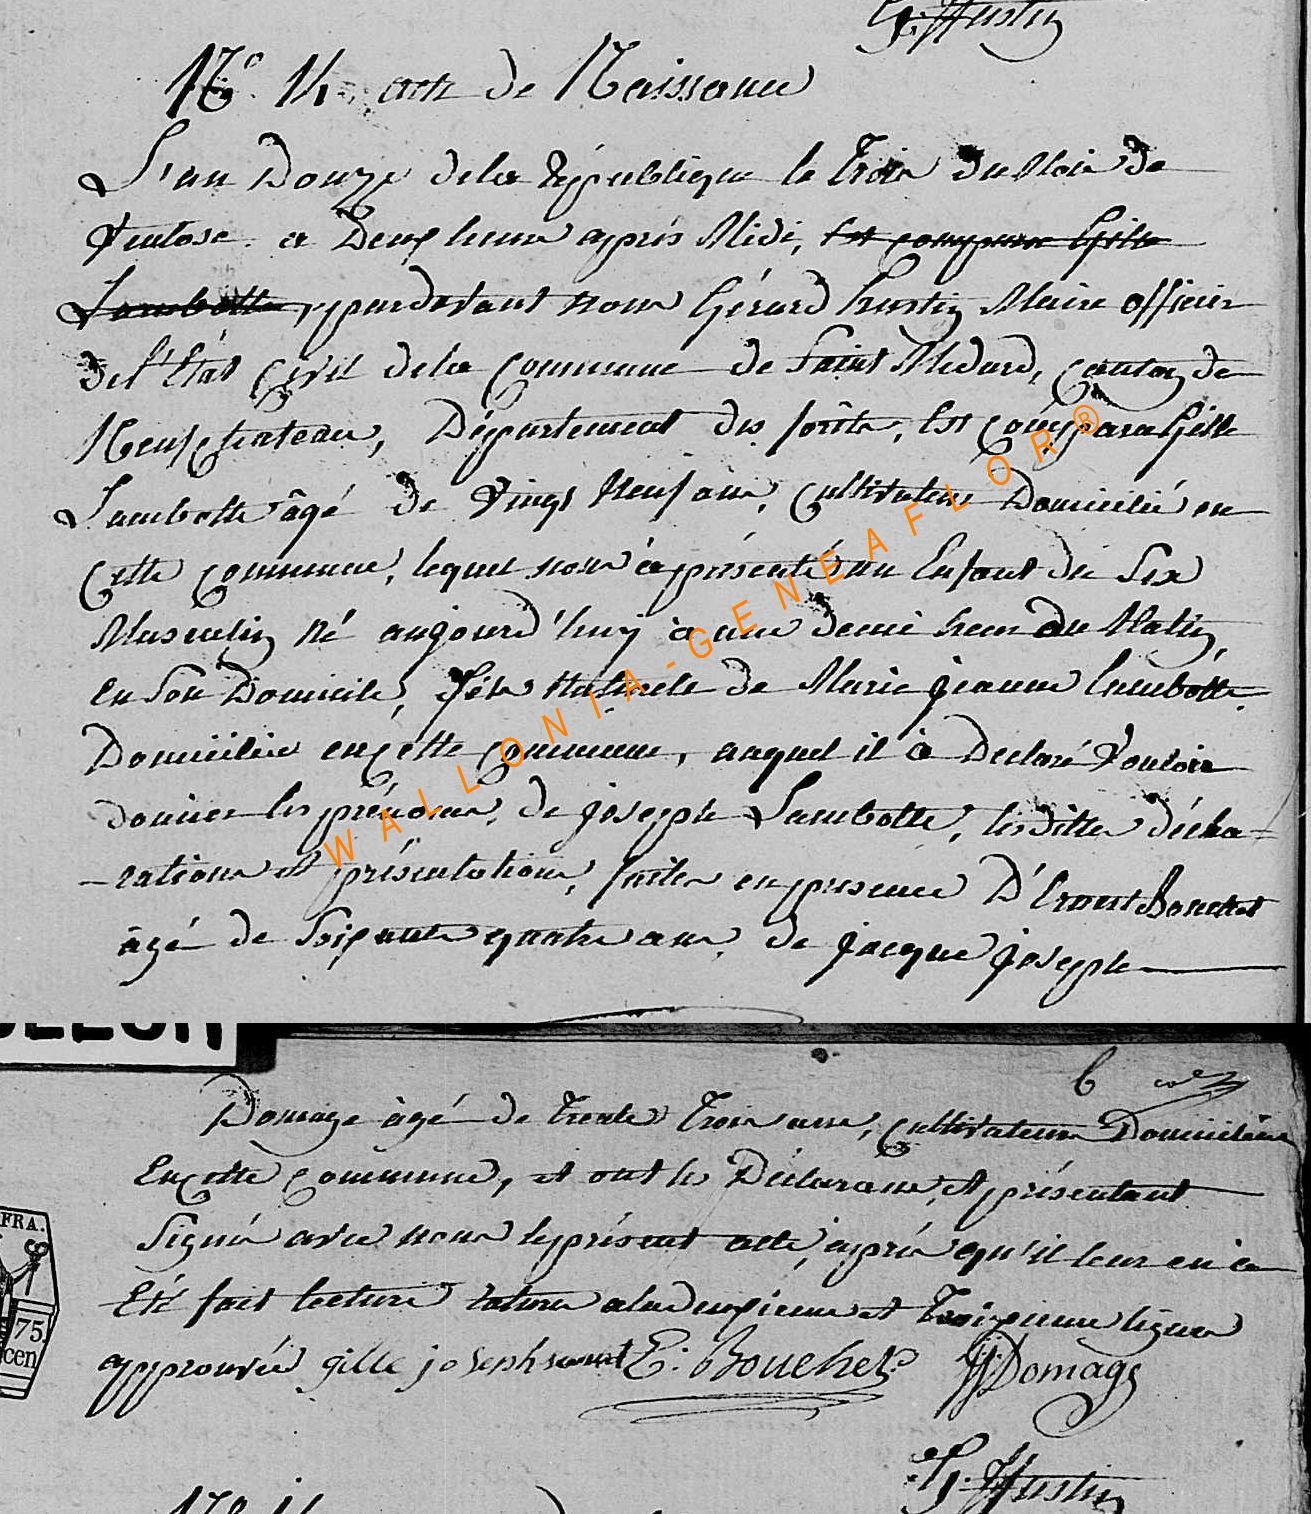 G. Hustin
N.o 14 acte de Naissance
L'an Douze dela République le Trois du Mois de
Ventose a Deux heures après Midi, Est comparu Gille
Lambotte, pardevant nous Gérard hustin Maire officier
de l'Etat civil dela commune de Saint Médard, canton de
Neufchateau, Département des forêts, Est comparu Gille
Lambotte âgé de Vingt Neuf ans, cultivateur Domicilié en
cette commune, lequel nous à présenté un Enfant du Sex
Masculin né aujourd'huy à une demie heure du Matin,
en Son Domicile, fils Naturele de Marie jeanne Lambotte
Domiciliée en cette commune, auquel il à Declaré Vouloir
donner les prénoms, de joseph Lambotte, lesdittes décla=
-rations et présentations, faites en presence D'Ernest Bouchet
âgé de Soixante quatre ans, de jacque joseph
6
Domage âgé de trente Trois ans, cultivateurs Domiciliées
En cette commune, et ont les Déclarans, et présentant
Signés avec nous le présent acte, après qu'il leur en à
Eté fait lecture rature a la deuxieme et Troixieme lignes
approuvée gille joseph E: Bouchet JJ Domage
G. Hustin
FRA.
75.
cen
WALLONIA-GENEAFLOR®